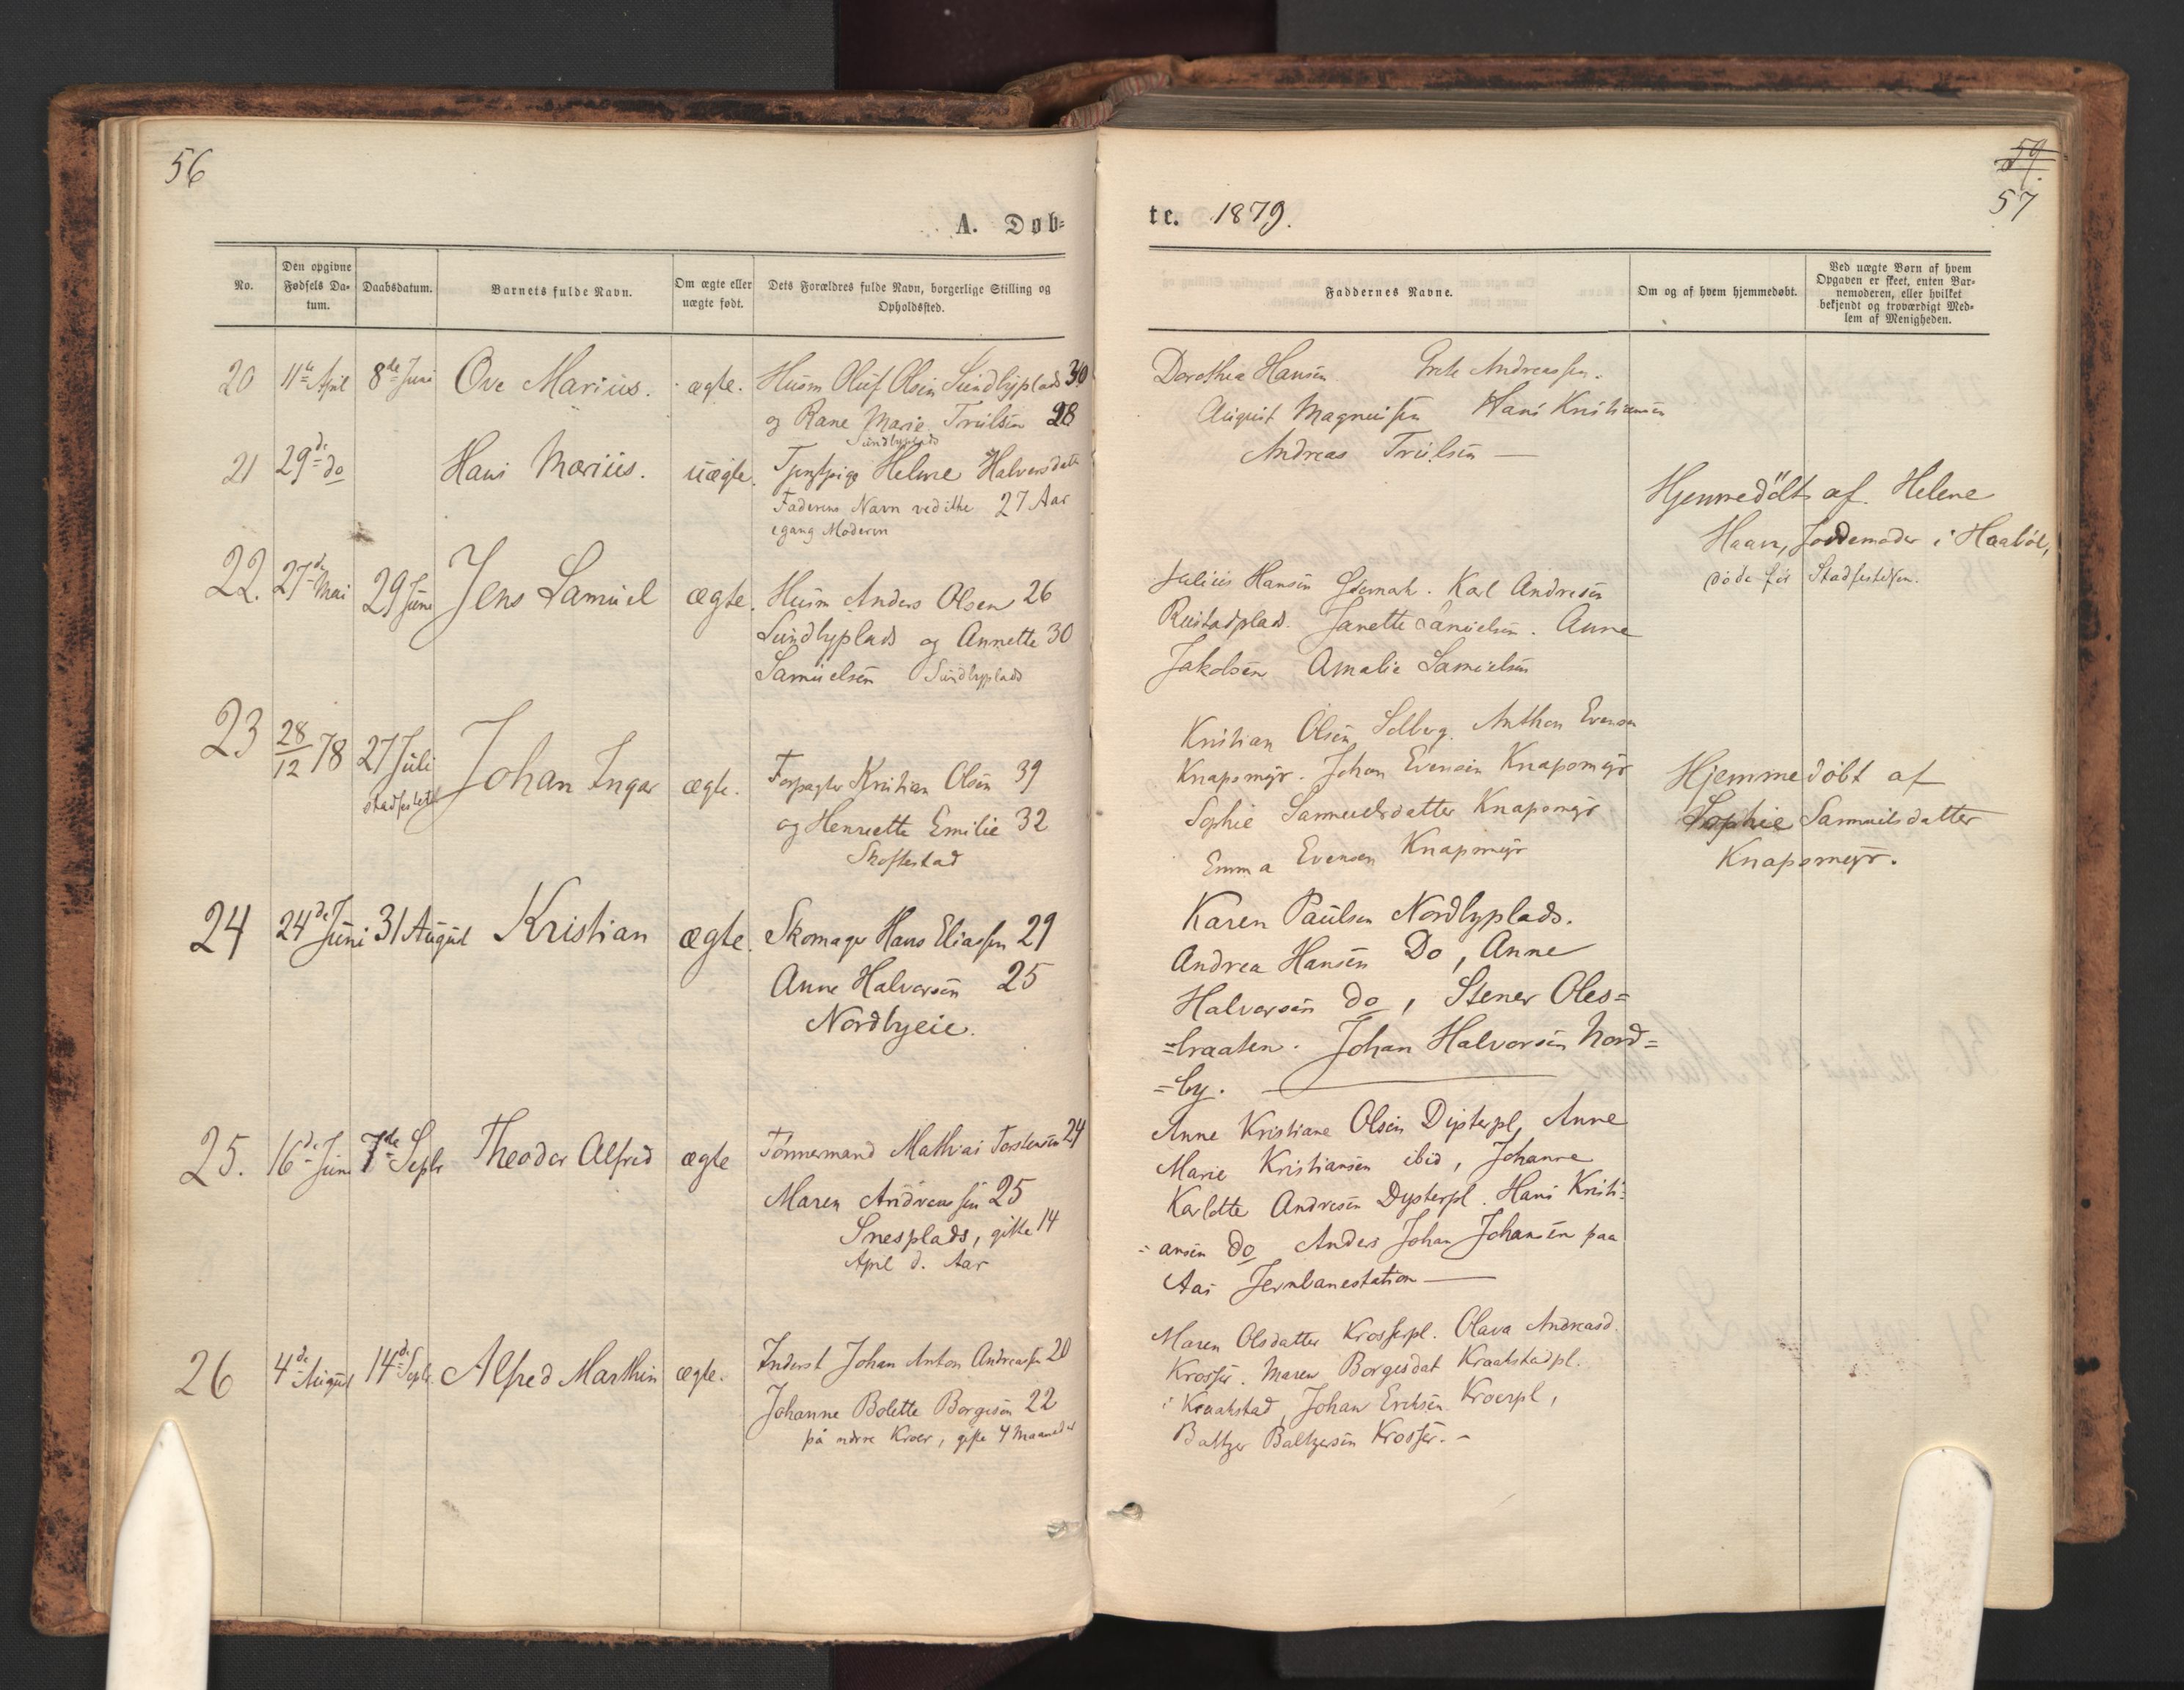 56
A. Døb=
No.
Den opgivne
Fødsels Da-
tum.
Daabsdatum.
Barnets fulde Navn.
Om ægte eller
uægte født.
Dets Forældres fulde Navn, borgerlige Stilling og
Opholdssted.
20 11te April 8de Juni Ove Marius. ægte. Husm Oluf Olsen Sundbyplads 30
og Rane Marie Trulsen 28
Sundbyplads
21 29de do Hans Marius. uægte. Tjenstpige Helene Halvorsdatter
Faderens Navn ved ikke 27 Aar
engang Moderen
22. 27de Mai 29 Juni Jens Samuel ægte. Husm Anders Olsen 26
Sundbyplads og Annette 30
Samuelsen Sundbyplads
23 28/12 78 27 Juli
stadfestet Johan Ingar ægte. Forpagter Kristian Olsen 39
og Henriette Emilie 32
Skoftestad
24 24de Juni 31 August Kristian ægte. Skomager Hans Eliassen 29
Anne Halvorsen 25
Nordbyeie.
25. 16de Juni 7de Septr Theodor Alfred ægte Tømmermand Mathias Torstensen 24
Maren Andreassen 25
Snesplads, gifte 14
April d. Aar
26 4de August 14de Septr. Alfred Marthin ægte. Inderst Johan Anton Andreassen 20
Johanne Bolette Borgesen 22
på nørre Kroer, gifte 4 Maaneder
te. 1879.
59.
57
Faddernes Navne.
Om og af hvem hjemmedøbt.
Ved uægte Børn af hvem
Opgaven er skeet, enten Bar-
nemoderen, eller hvilket
bekjendt og troværdigt Med-
lem af Menigheden.
Dorothea Hansen Grete Andreassen.
August Magnussen Hans Kristiansen
Andreas Trulsen —
Hjemmedøbt af Helene
Haan, Jordemoder i Haabøl,
døde før Stadfestelsen.
Julius Hansen Karl Andresen
Rustadplads. Janette Samuelsen. Anne
Jakobsen Amalie Samuelsen
Kristian Olsen Solberg. Anthon Evensen
Knapsmyr. Johan Evensen Knapsmyr
Sophie Sammuelsdatter Knapsmyr
Emma Evensen Knapsmyr
Hjemmedøbt af
Sophie Samuelsdatter
Knapsmyr.
Karen Paulsen Nordbyplads.
Andrea Hansen Do, Anne
Halvorsen do, Stener Oles=
=braaten. Johan Halvorsen Nord=
=by.
Anne Kristiane Olsen Dysterpl, Anne
Marie Kristiansen ibid, Johanne
Karlotte Andresen Dysterpl. Hans Kristi=
=ansen do Anders Johan Johansen paa
Aas Jernbanestation —
Maren Olsdatter Krosserpl. Olava Andreasd.
Krosser. Maren Borgesdat Kraakstadpl.
i Kraakstad, Johan Eriksen Kroerpl,
Baltzer Baltzersen Krosser. -